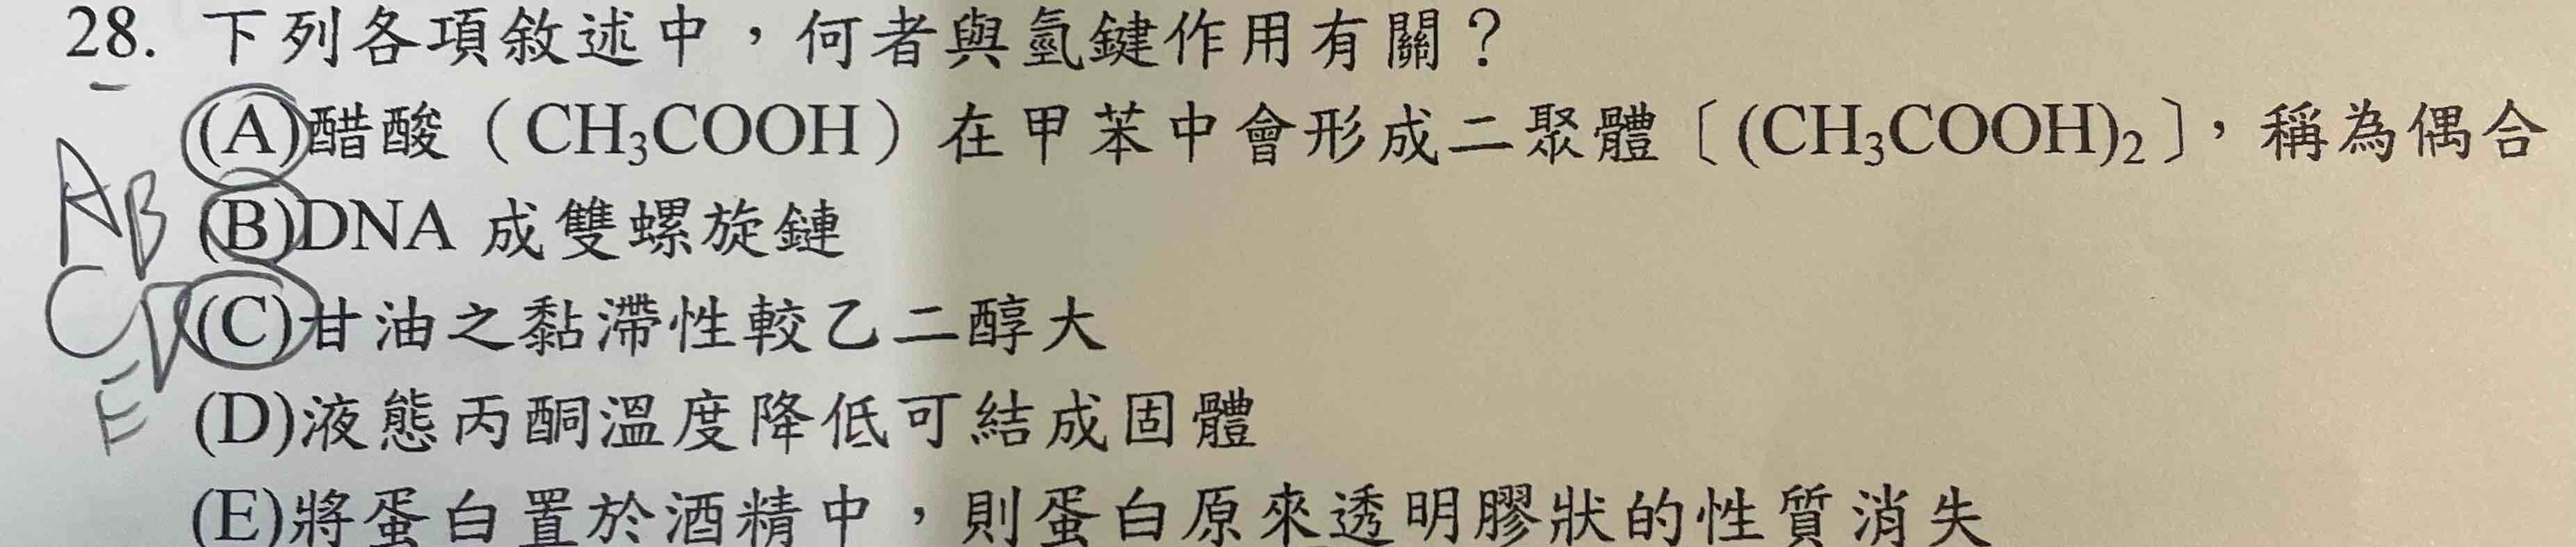 28. 下列各項敘述中，何者與氫鍵作用有關？
(A)醋酸（CH₃COOH）在甲苯中會形成二聚體〔(CH₃COOH)₂〕，稱為偶合
(B)DNA 成雙螺旋鏈
(C)甘油之黏滯性較乙二醇大
(D)液態丙酮溫度降低可結成固體
(E)將蛋白置於酒精中，則蛋白原來透明膠狀的性質消失
AB
CD
E